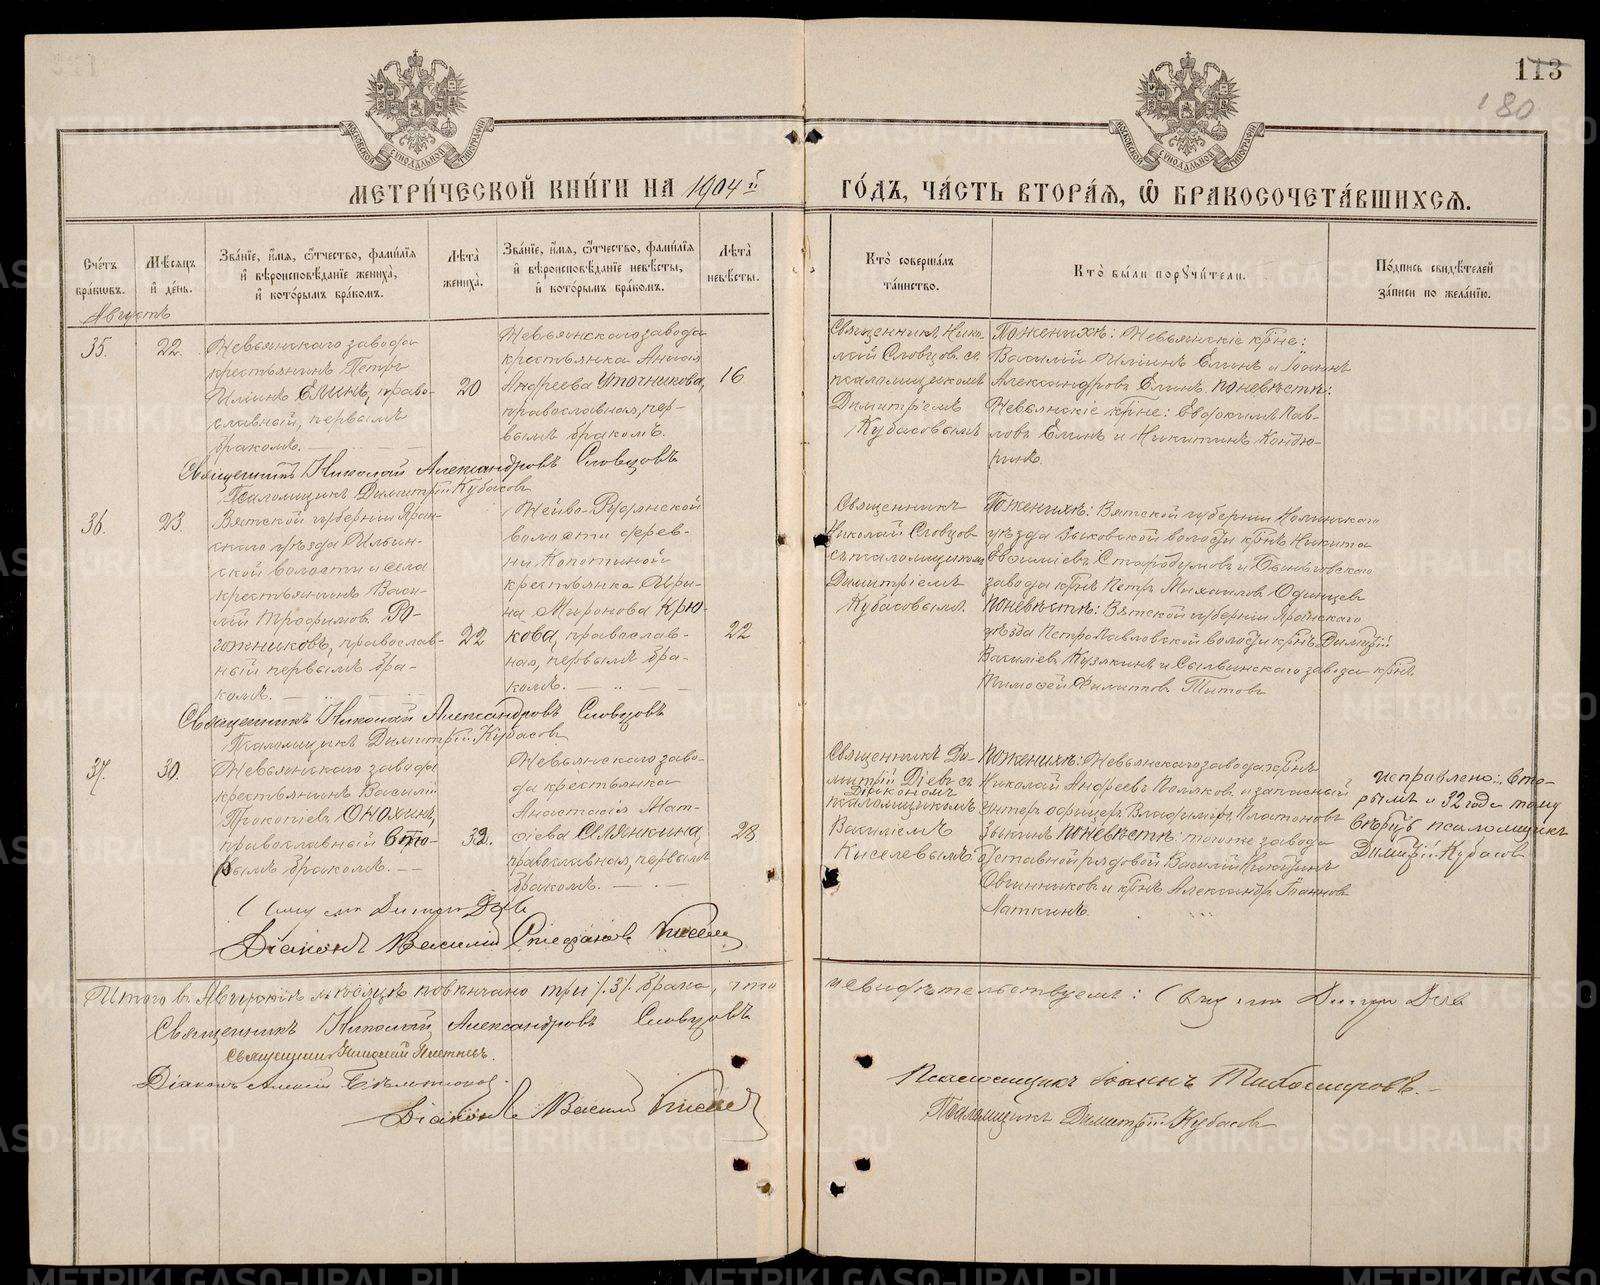 113
180
МОСКОВСКОЙ СѴНОДАЛЬНОЙ ТИПОГРАФІИ
МОСКОВСКОЙ СѴНОДАЛЬНОЙ ТИПОГРАФІИ
МЕТРИ́ЧЕСКОЙ КНИ́ГИ НА 1904й
ГО́ДЪ, ЧА́СТЬ ВТОРА́Ѧ, Ѡ҆ БРАКОСОЧЕТА́ВШИХСѦ.
Сче́тъ бра́кѡвъ.
Мѣ́сѧцъ и҆ де́нь.
Зва́нїе, и҆́мѧ, ѻ҆́тчество, фами́лїѧ и҆ вѣроисповѣ́данїе жениха̀, и҆ кото́рымъ бра́комъ.
Лѣта̀ жениха̀.
Зва́нїе, и҆́мѧ, ѻ҆́тчество, фами́лїѧ и҆ вѣроисповѣ́данїе невѣ́сты, и҆ кото́рымъ бра́комъ.
Лѣта̀ невѣ́сты.
Кто̀ соверша́лъ та́инство.
Кто̀ бы́ли порꙋчи́тели.
По́дпись свидѣ́телей за́писи по жела́нїю.
Августъ
35.
22.
Невьянскаго завода
крестьянинъ Петръ
Иліинъ Елинъ, право-
славный, первымъ
бракомъ.
20
Невьянскаго завода
крестьянка Аниля
Андреева Уточникова,
православная, пер-
вымъ бракомъ.
16
Священникъ Нико-
лай Словцовъ съ
псаломщикомъ
Димитріемъ
Кубасовымъ
По женихѣ: Невьянскіе кр̃не:
Василій Иліинъ Елинъ и Іоаннъ
Александровъ Елинъ. По невѣстѣ:
Невьянскіе кр̃не: Евфимъ Пав-
ловъ Елинъ и Никитинъ Кондю-
ринъ.
Священникъ Николай Александровъ Словцовъ
Псаломщикъ Димитрій Кубасовъ
36.
23
Вятской губерніи Яран-
скаго уѣзда Ильин-
ской волости и села
крестьянинъ Васи-
лій Трофимовъ Ро-
гожниковъ, православ-
ный первымъ бра-
комъ.
22
Нейво-Рудянской
волости дерев-
ни Копотиной
крестьянка Ири-
на Миронова Крю-
кова, православ-
ная, первымъ бра-
комъ.
22
Священникъ
Николай Словцовъ
съ псаломщикомъ
Димитріемъ
Кубасовымъ.
По женихѣ: Вятской губерніи Нолинскаго
уѣзда Зыковской волости кр̃нъ Никита
Евфиміевъ Стародумовъ и Быньговскаго
завода кр̃нъ Петръ Михаиловъ Одинцевъ
По невѣстѣ: Вятской губерніи Яранскаго
уѣзда Петропавловской волости кр̃нъ Димитрій
Василіевъ Кузякинъ и Сылвинскаго завода кр̃нъ
Тимофей Филиповъ Титовъ
Священникъ Николай Александровъ Словцовъ
Псаломщикъ Димитрій Кубасовъ
37.
30.
Невьянскаго завода
крестьянинъ Василій
Прокопіевъ Онохинъ,
православный вто-
рымъ бракомъ.
32.
Невьянскаго заво-
да крестьянка
Анастасія Мат-
ѳіева Семянкина,
православная, первымъ
бракомъ.
28
Священникъ Ди-
митрій Діевъ съ
діакономъ
псаломщикомъ
Василіемъ
Киселевымъ
По женихѣ: Невьянскаго завода кр̃нъ
Николай Андреевъ Поляковъ и запасный
унтеръ офицеръ Владиміръ Платоновъ
Зыкинъ По невѣстѣ: того же завода
отставной рядовой Василій Никитинъ
Овчинниковъ и кр̃нъ Александръ Іоанновъ
Латкинъ.
исправлено: Вто-
рымъ и 32 года тому
вѣритъ псаломщикъ
Димитрій Кубасовъ
Священникъ Димитрій Діевъ
Діаконъ Василій Стефановъ Киселевъ
Итого въ Августѣ мѣсяцѣ повѣнчано три /3/ брака, что
и свидѣтельствуемъ: Священникъ Димитрій Діевъ
Священникъ Николай Александровъ Словцовъ
Священникъ Николай
Діаконъ Алексій
Діаконъ Василій Киселевъ
Псаломщикъ Іоаннъ Тихомировъ.
Псаломщикъ Димитрій Кубасовъ
METRIKI.GASO-URAL.RU